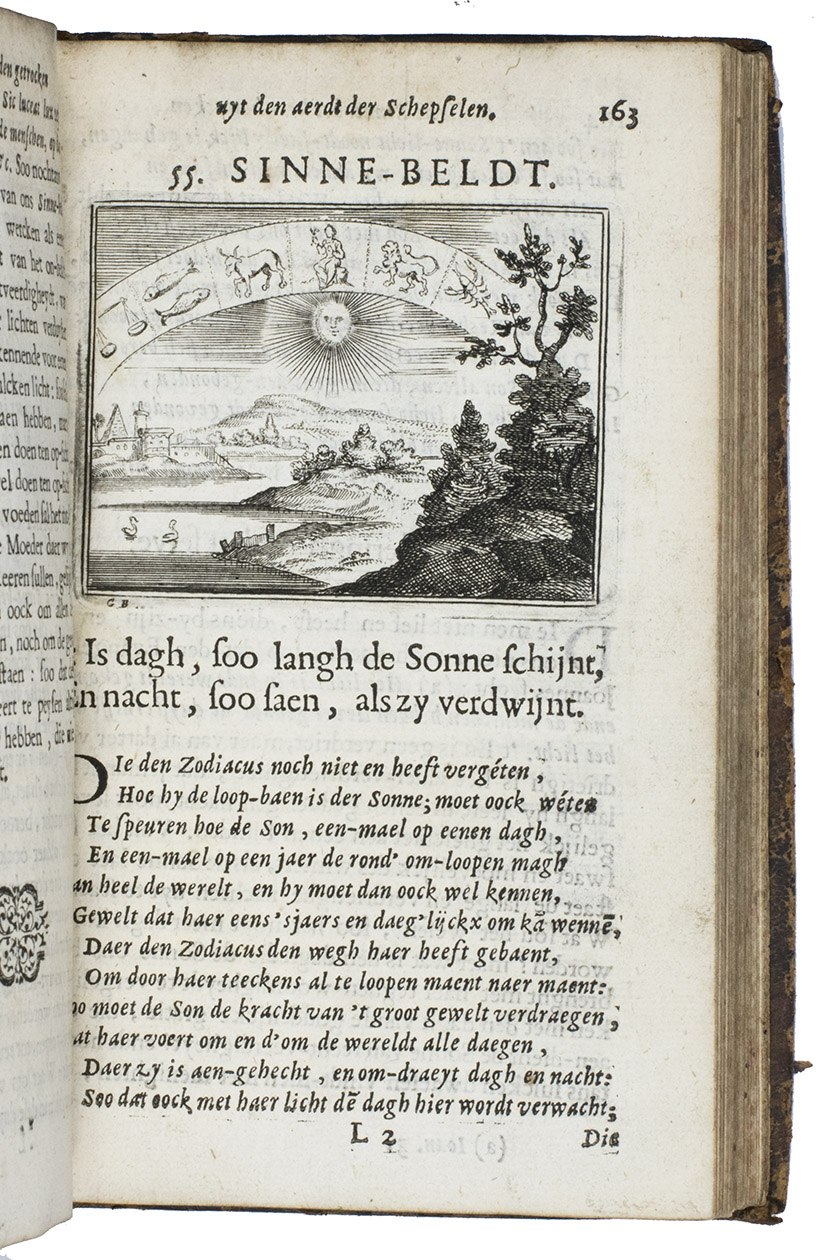 den getrocken
Sic luceat lux
de menschen, op
&c. Soo nochtan
van ons Sinne-
wercken als
van het
lichten
kennende voor
lcken licht:
aen hebben,
en doen ten op
el doen ten op
voeden sal het
Moeder daer
leeren sullen,
oock om allen
n, noch om de
staen : soo dat
eert te peysen
hebben, die
uyt den aerdt der Schepselen. 163
55. SINNE-BELDT.
G B
Is dagh, soo langh de Sonne schijnt,
In nacht, soo saen, als zy verdwijnt.
Die den Zodiacus noch niet en heeft vergéten,
Hoe hy de loop-baen is der Sonne; moet oock wéten
Te speuren hoe de Son, een-mael op eenen dagh,
En een-mael op een jaer de rond' om-loopen magh
an heel de werelt, en hy moet dan oock wel kennen,
Gewelt dat haer eens 'sjaers en daeg'lijckx om kā wennē,
Daer den Zodiacus den wegh haer heeft gebaent,
Om door haer teeckens al te loopen maent naer maent:
oo moet de Son de kracht van 't groot gewelt verdraegen,
at haer voert om en d'om de wereldt alle daegen,
Daer zy is aen-gehecht, en om-draeyt dagh en nacht:
Soo dat oock met haer licht dē dagh hier wordt verwacht;
L 2 Die